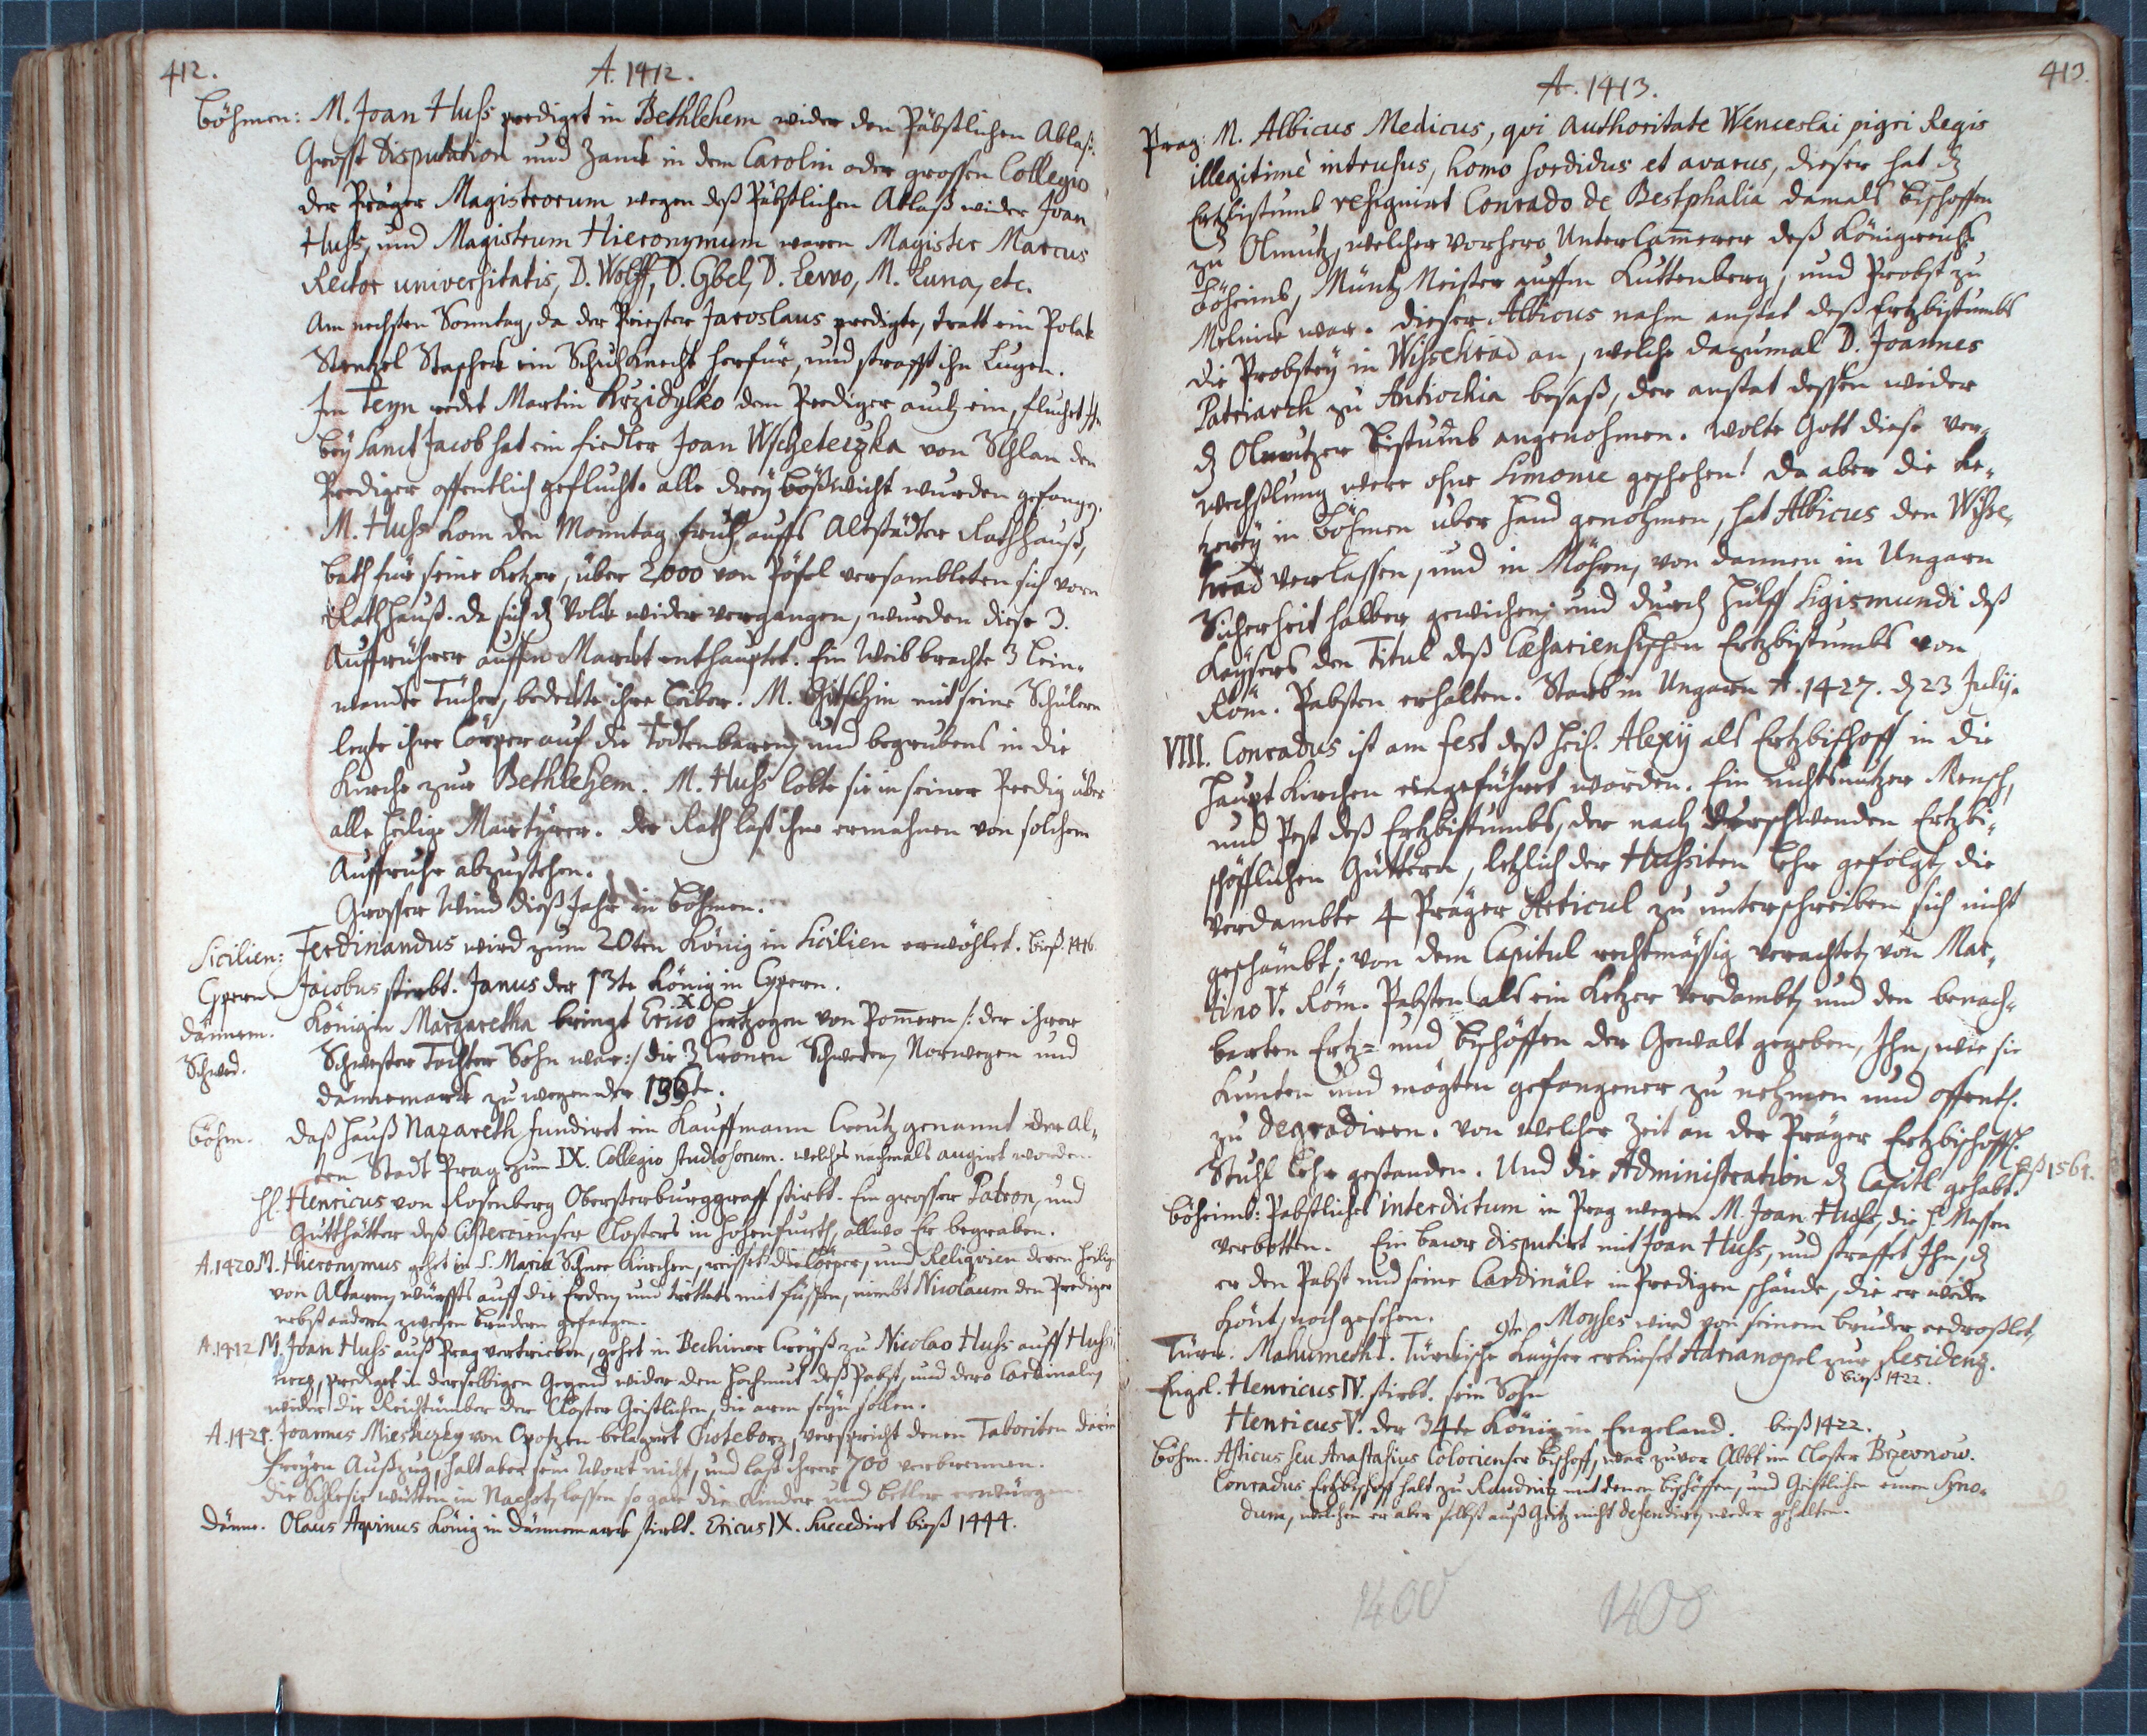 412.
A. 1412.
Böhmen: M. Joan Huss prediget in Bethlehem wider den Päbstlichen Ablaß.
Grosse Disputation und Zanck in dem Carolin oder grossen Collegio
der Prager Magistrorum wegen deß Päbstlichen Ablaß wider Joan
Huss, und Magistrum Hieronymum waren Magister Marcus
Rector universitatis, D. Wolff, D. Gbel, D. Lewo, M. Luna, etc.
Am nechsten Sonntag, da der Priester Jaroslaus predigte, tratt ein Polak
Stentzel Staschek ein Schuhknecht herfür, und strafft ihn Lugen.
Im Teyn redet Martin Krzidylko dem Prediger auch ein, fluchet ihm
bey Sanct Jacob hat ein fiedler Joan Wscheteczka von Schlan den
Prediger offentlich geflucht. alle drey bößwicht wurden gefangen.
M. Huss kom den Monntag fruh auffs Altstädter Rathhauß,
bath für seine Ketzer, über 2000 von Pöfel versambleten sich vorn
Rathhauß. da sich dz Volck wider vergangen, wurden diese 3.
Auffrührer auffm Marckt enthauptet. Ein Weib brachte 3 lein-
wandte Tücher, bedeckte ihre Leiber. M. Gitschin mit seine Schülern
legte ihre Cörper auf die Todtenbaren, und begrubens in die
Kirche zur Bethlehem. M. Huss lobte sie in seiner Predig über
alle heilige Martyrer. der Rath last ihne ermahnen von solchem
Auffruhr abzustehen.
Grosser Wind dieß Jahr in Böhmen.
Sicilien: Ferdinandus wird zum 20ten König in Sicilien erwöhlet. bieß 1416.
Cypern. Jacobus stirbt. Janus der 13te König in Cypern.
Dännem. Königin Margaretha bringt Erico X Hertzogen von Pommern /: der ihrer
Schwed. Schwester Tochter Sohn war :/ die 3 Cronen Schweden, Norwegen und
Dannemarck zu wegen der 136te.
Böhm. Daß Hauß Nazareth fundiret ein Kauffmann Creutz genannt der Al-
ten Stadt Prag zum IX. Collegio studiosorum. welches nachmals augirt worden.
H. Henricus von Rosenberg Obersterburggraff stirbt. Ein grosser Patron, und
Gutthätter deß Cistercienser Closters in Hohenfurth, allwo Er begraben.
A. 1420 M. Hieronymus gehet in S. Maria Schnee Kirchen, reisset die Cörper, und Religvien deren Heilig
von Altaren, würffts auff die Erden, und trettets mit füssen, nimbt Nicolaum den Prediger
nebst andern zweyen brüdern gefangen.
A. 1412 M. Joan Huss auß Prag vertrieben, gehet in Bechiner Creyß zu Nicolao Huss auff Hussi-
netz, prediget in derselbigen Gegend wider den Hochmut deß Pabst, und dero Cardinalen,
wider die Reichtümber der Closter Geistlichen, die arm seyn sollen.
A. 1421. Joannes Miesteczky von Opotzen belagert Choteborz, verspricht denen Taboriten darin
freyen Außzug, halt aber sein Wort nicht, und last ihrer 700 verbrennen.
die Schlesier wütten in Nachot, lassen so gar die Kinder und bettler erwürgen.
Dänne. Olaus Aqvinus König in Dännemarck stirbt. Ericus IX. Succedirt bieß 1444.
413.
A. 1413.
Prag: M. Albicus Medicus, qvi authoritate Wenceslai pigri Regis
illegitimè intrusus, homo sordidus et avarus, dieser hat dz
Ertzbistumb resignirt Conrado de Bestphalia damals Bischoffen
zu Olmutz, welcher vorhero Unterkammerer deß Königreichs
Böheimb, Müntz Meister auffm Kuttenberg, und Probst zu
Melnick war. dieser Albicus nahm anstat deß Ertzbistumbs
die Probstey in Wissehrad an, welche dazumal D. Joannes
Patriarch zu Antiochia besaß, der anstat dessen wider
dz Olmutzer Bistumb angenohmen. wolte Gott diese ver-
wechßlung were ohne Simonie geschehen! da aber die Ke-
tzerey in Böhmen uber hand genohmen, hat Albicus den Wisse-
hrad verlassen, und in Möhren, von dannen in Ungarn
Sicherheit halber gewichen, und durch Hülff Sigismundi deß
Kaysers den Titul deß Cæsariensischen Ertzbistumbs von
Röm. Pabsten erhalten. Starb in Ungarn A. 1427. dz 23 Julij.
VIII. Conradus ist am fest deß Heil. Alexij als Ertzbischoff in die
Haupt Kirchen eingeführet worden. Ein nichtsnutzer Mensch,
und Pest deß Ertzbistumbs, der nach verschwenden Ertzbi-
schöfflichen Güttern, letzlich der Hussiten Lehr gefolgt, die
verdambte 4 Prager Articul zu unterschreiben sich nicht
geschämbt; von dem Capitul rechtmässig verachtet, von Mar-
tino V. Röm. Pabsten als ein Ketzer verdambt, und den benach-
barten Ertz= und Bischöffen der Gewalt gegeben, Ihn, wie sie
kunten und mögten gefangener zu nehmen und offentl.
zu degradiren. von welcher Zeit an der Prager Ertzbischoffl.
Stuhl lehr gestanden. Und die Administration dz Capitl gehabt. bieß 1561.
Böheimb: Pabstliches interdictum in Prag wegen M. Joan Huss, die H. Messen
verbotten. Ein bawr disputirt mit Joan Huss, und straffet Ihn, dz
er den Pabst und seine Cardinäle in Predigen schände, die er weder
könt, noch gesehen. 9te Moyses wird von seinem bruder erdroßlet,
Türck: Mahumeth I. Türckische Kayser erkieset Adrianopel zur Residenz.
bieß 1422.
Engel. Henricus IV. stirbt. sein Sohn
Henricus V. der 34te König in Engeland. bieß 1422.
Böhm. Asticus seu Anastasius Colocienser Bischoff, war zuvor Abbt im Closter Brzevnow.
Conradus Ertzbischoff halt zu Raudnitz mit denen Bischöffen, und Geistlichen einen Syno-
dum, welchen er aber selbst auß Geitz nicht defendirt, weder gehalten.
1400 1400